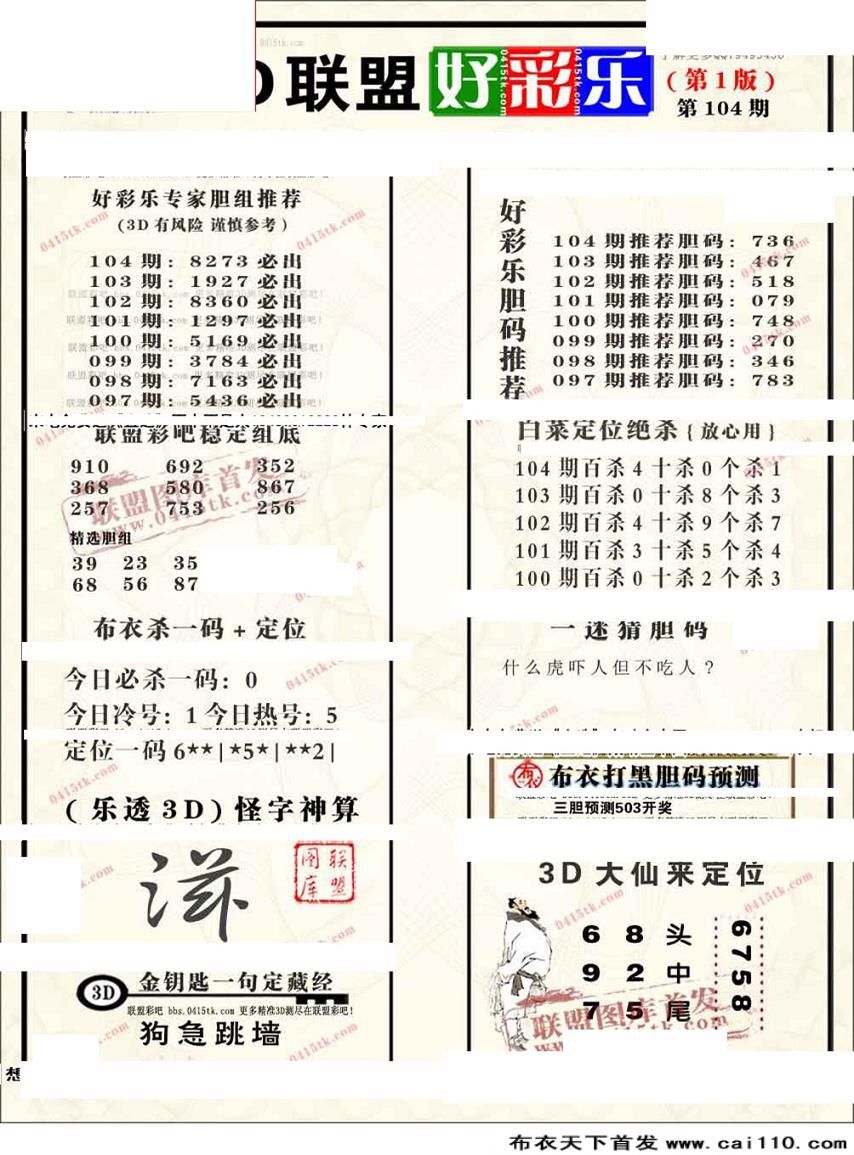 联盟 好彩乐
(第1版)
第104期
好彩乐专家胆组推荐
(3D有风险 谨慎参考)
104期: 8273必出
103期: 1927必出
102期: 8360必出
101期: 1297必出
100期: 5169必出
099期: 3784必出
098期: 7163必出
097期: 5436必出
联盟彩吧稳定组底
910 692 352
368 580 867
257 753 256
精选胆组
39 23 35
68 56 87
布衣杀一码+定位
今日必杀一码: 0
今日冷号: 1 今日热号: 5
定位一码 6**|*5*|**2|
(乐透3D)怪字神算
联盟图库
3D 金钥匙一句定藏经
联盟彩吧 bbs.0415tk.com 更多精准3D测尽在联盟彩吧!
狗急跳墙
好彩乐胆码推荐
104期推荐胆码: 736
103期推荐胆码: 467
102期推荐胆码: 518
101期推荐胆码: 079
100期推荐胆码: 748
099期推荐胆码: 270
098期推荐胆码: 346
097期推荐胆码: 783
白菜定位绝杀{放心用}
104期百杀4十杀0个杀1
103期百杀0十杀8个杀3
102期百杀4十杀9个杀7
101期百杀3十杀5个杀4
100期百杀0十杀2个杀3
一迷猜胆码
什么虎吓人但不吃人?
布衣 布衣打黑胆码预测
三胆预测503开奖
3D大仙来定位
6 8 头
9 2 中
7 5 尾
6758
联盟图库首发
www.0415tk.com
布衣天下首发 www.cai110.com